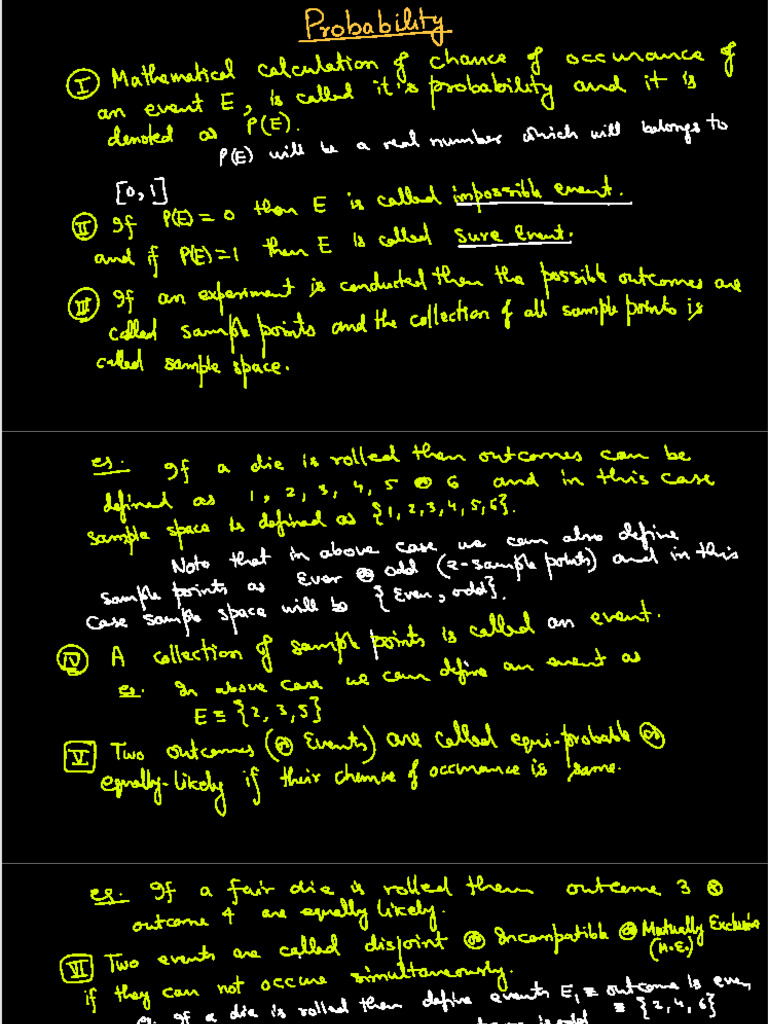 Probability
(I) Mathematical calculation of chance of occurance of
an event E, is called it's probability and it is
denoted as P(E).
P(E) will be a real number which will belongs to
[0,1]
(II) If P(E) = 0 then E is called impossible event.
and if P(E) = 1 then E is called sure Event.
(III) If an experiment is conducted then the possible outcomes are
called sample points and the collection of all sample points is
called sample space.
eg. If a die is rolled then outcomes can be
defined as 1, 2, 3, 4, 5 or 6 and in this case
sample space is defined as {1,2,3,4,5,6}.
Note that in above case we can also define
sample points as Even or odd (2-sample points) and in this
case sample space will be {Even, odd}.
(IV) A collection of sample points is called an event.
eg. In above case we can define an event as
E ≡ {2, 3, 5}
V Two outcomes (or Events) are called equi-probable or
equally-likely if their chance of occurance is same.
eg. If a fair die is rolled then outcome 3 &
outcome 4 are equally likely.
VI Two events are called disjoint or Incompatible or Mutually Exclusive
(M.E)
if they can not occure simultaneously.
eg. If a die is rolled then define events E₁ ≡ outcome is even
≡ {2, 4, 6}
is odd